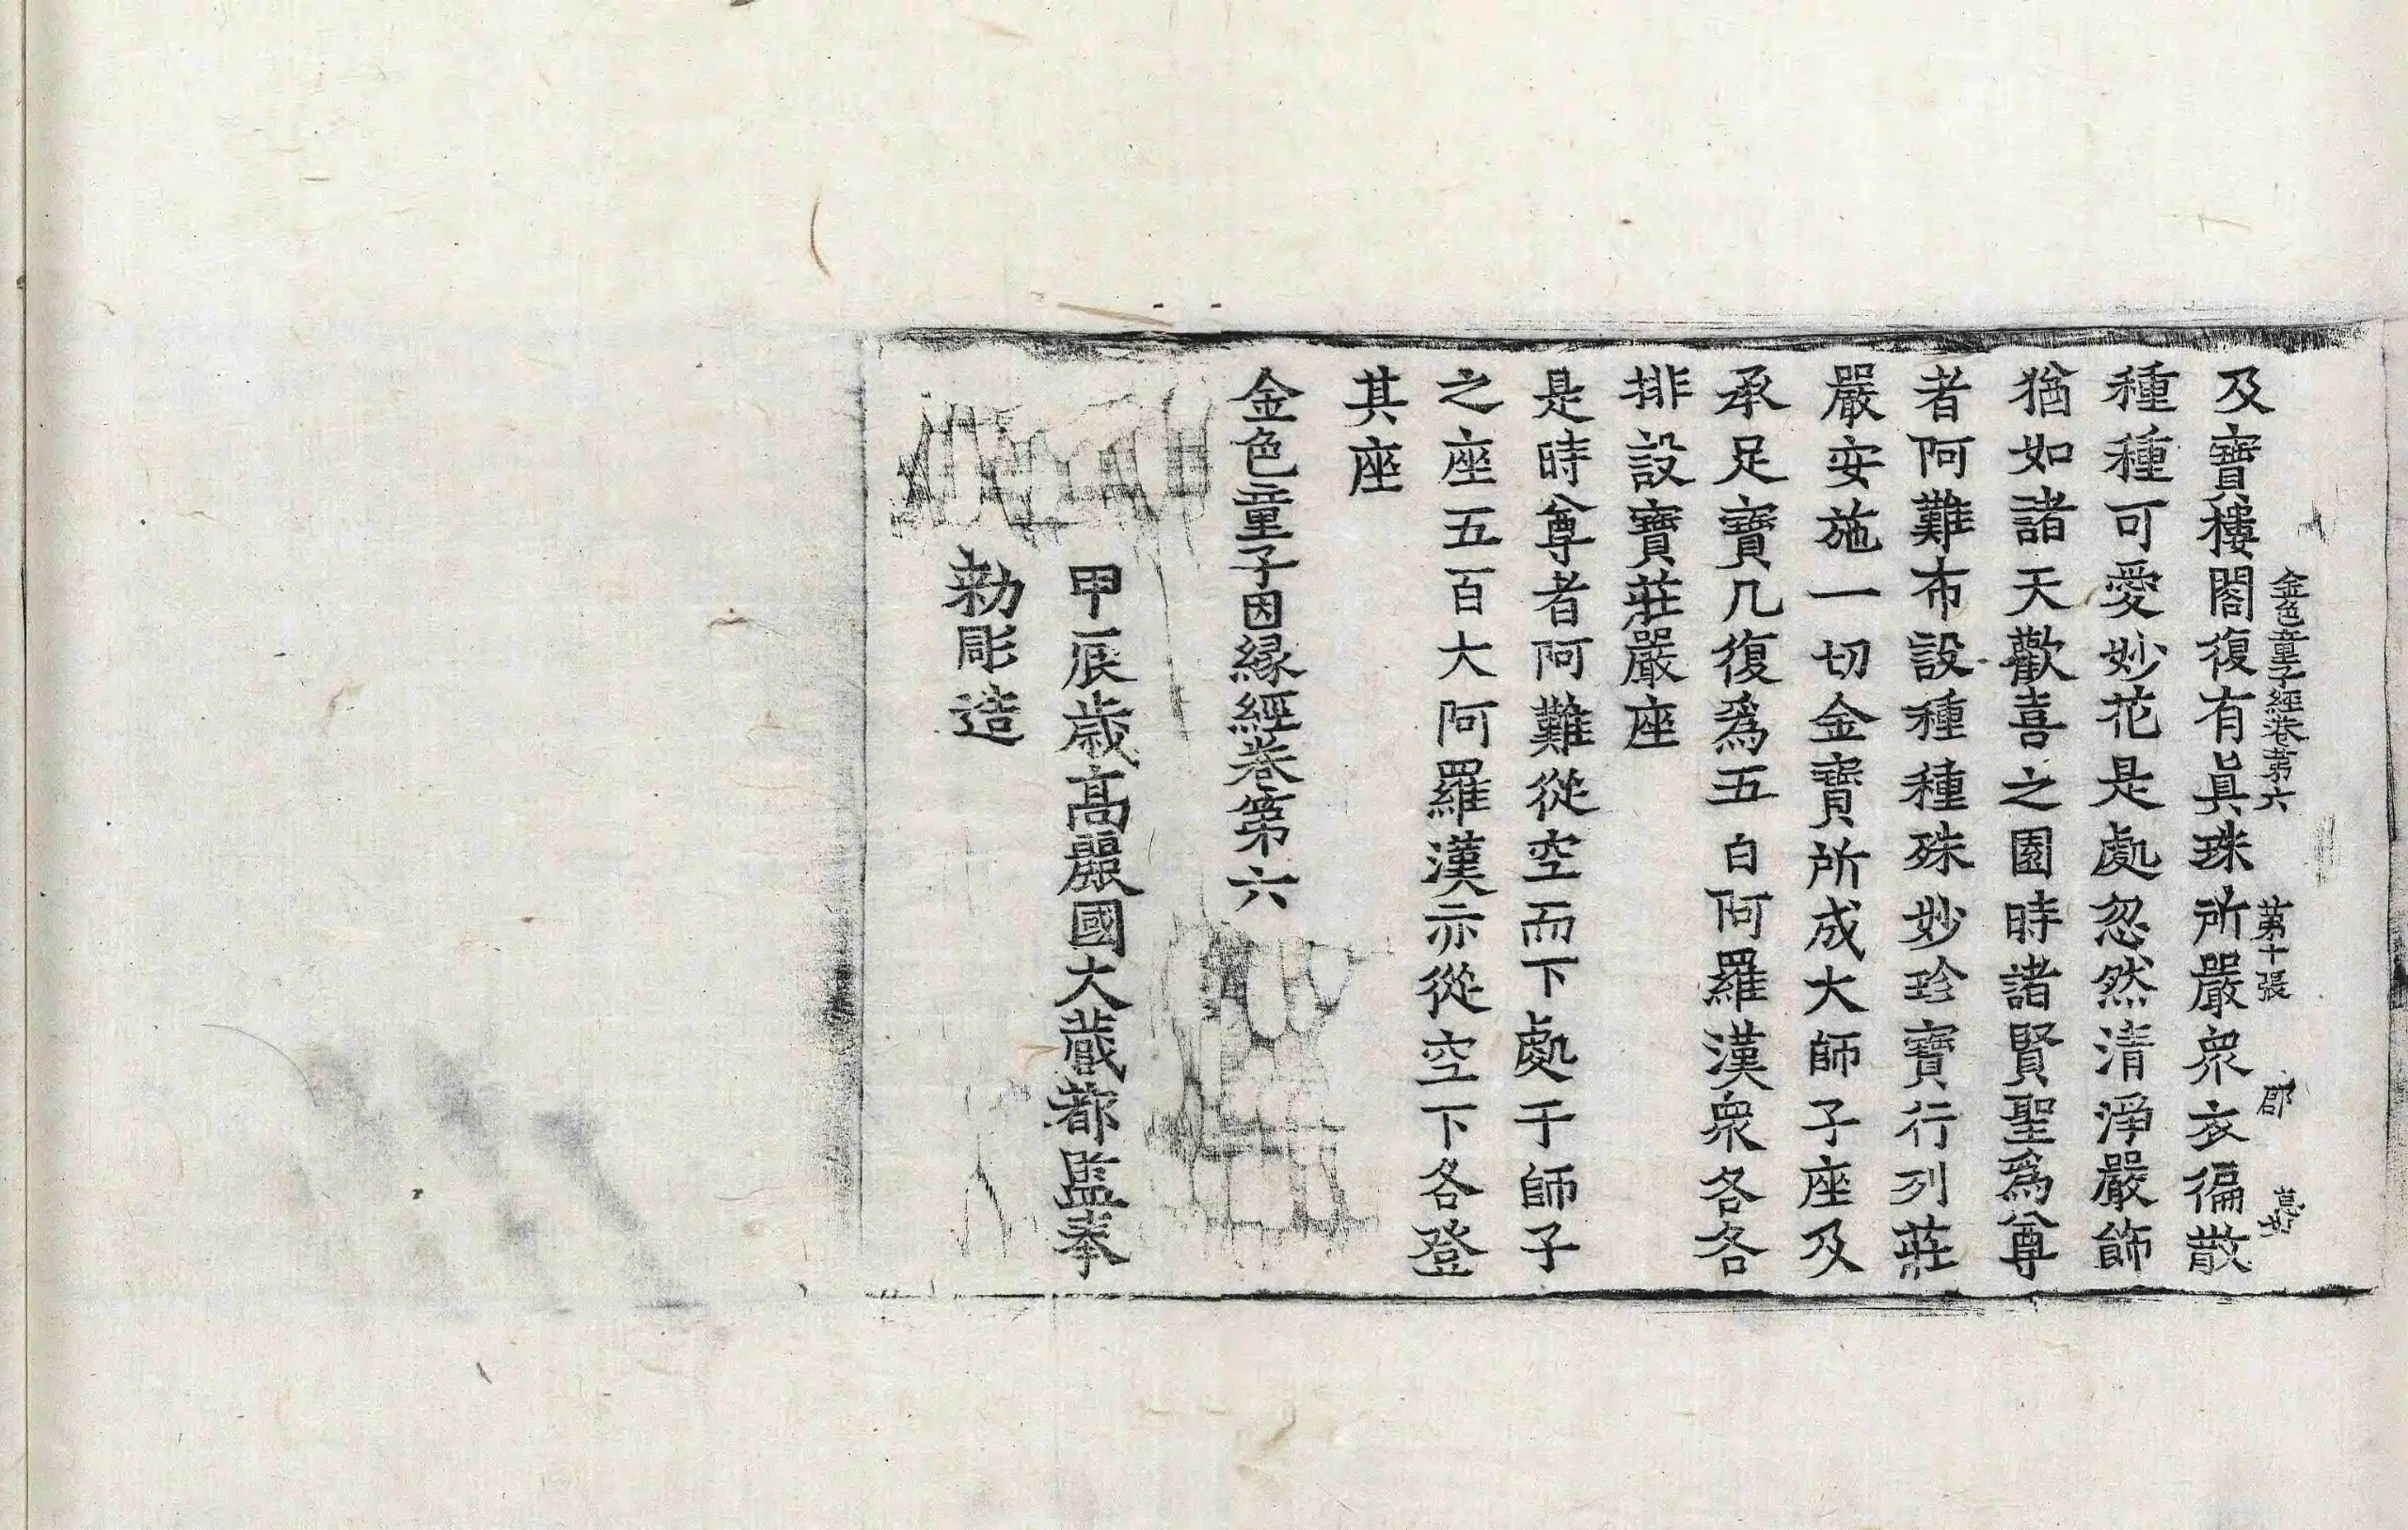 金色童子經卷第六 第十張 郡
及寶樓閣復有眞珠所嚴衆衣徧散
種種可愛妙花是處忽然清淨嚴飾
猶如諸天歡喜之園時諸賢聖爲尊
者阿難布設種種殊妙珍寶行列莊
嚴安施一切金寶所成大師子座及
承足寶几復爲五百阿羅漢衆各各
排設寶莊嚴座
是時尊者阿難從空而下處于師子
之座五百大阿羅漢亦從空下各登
其座
金色童子因縁經卷第六
甲辰歳高麗國大藏都監奉
勅彫造